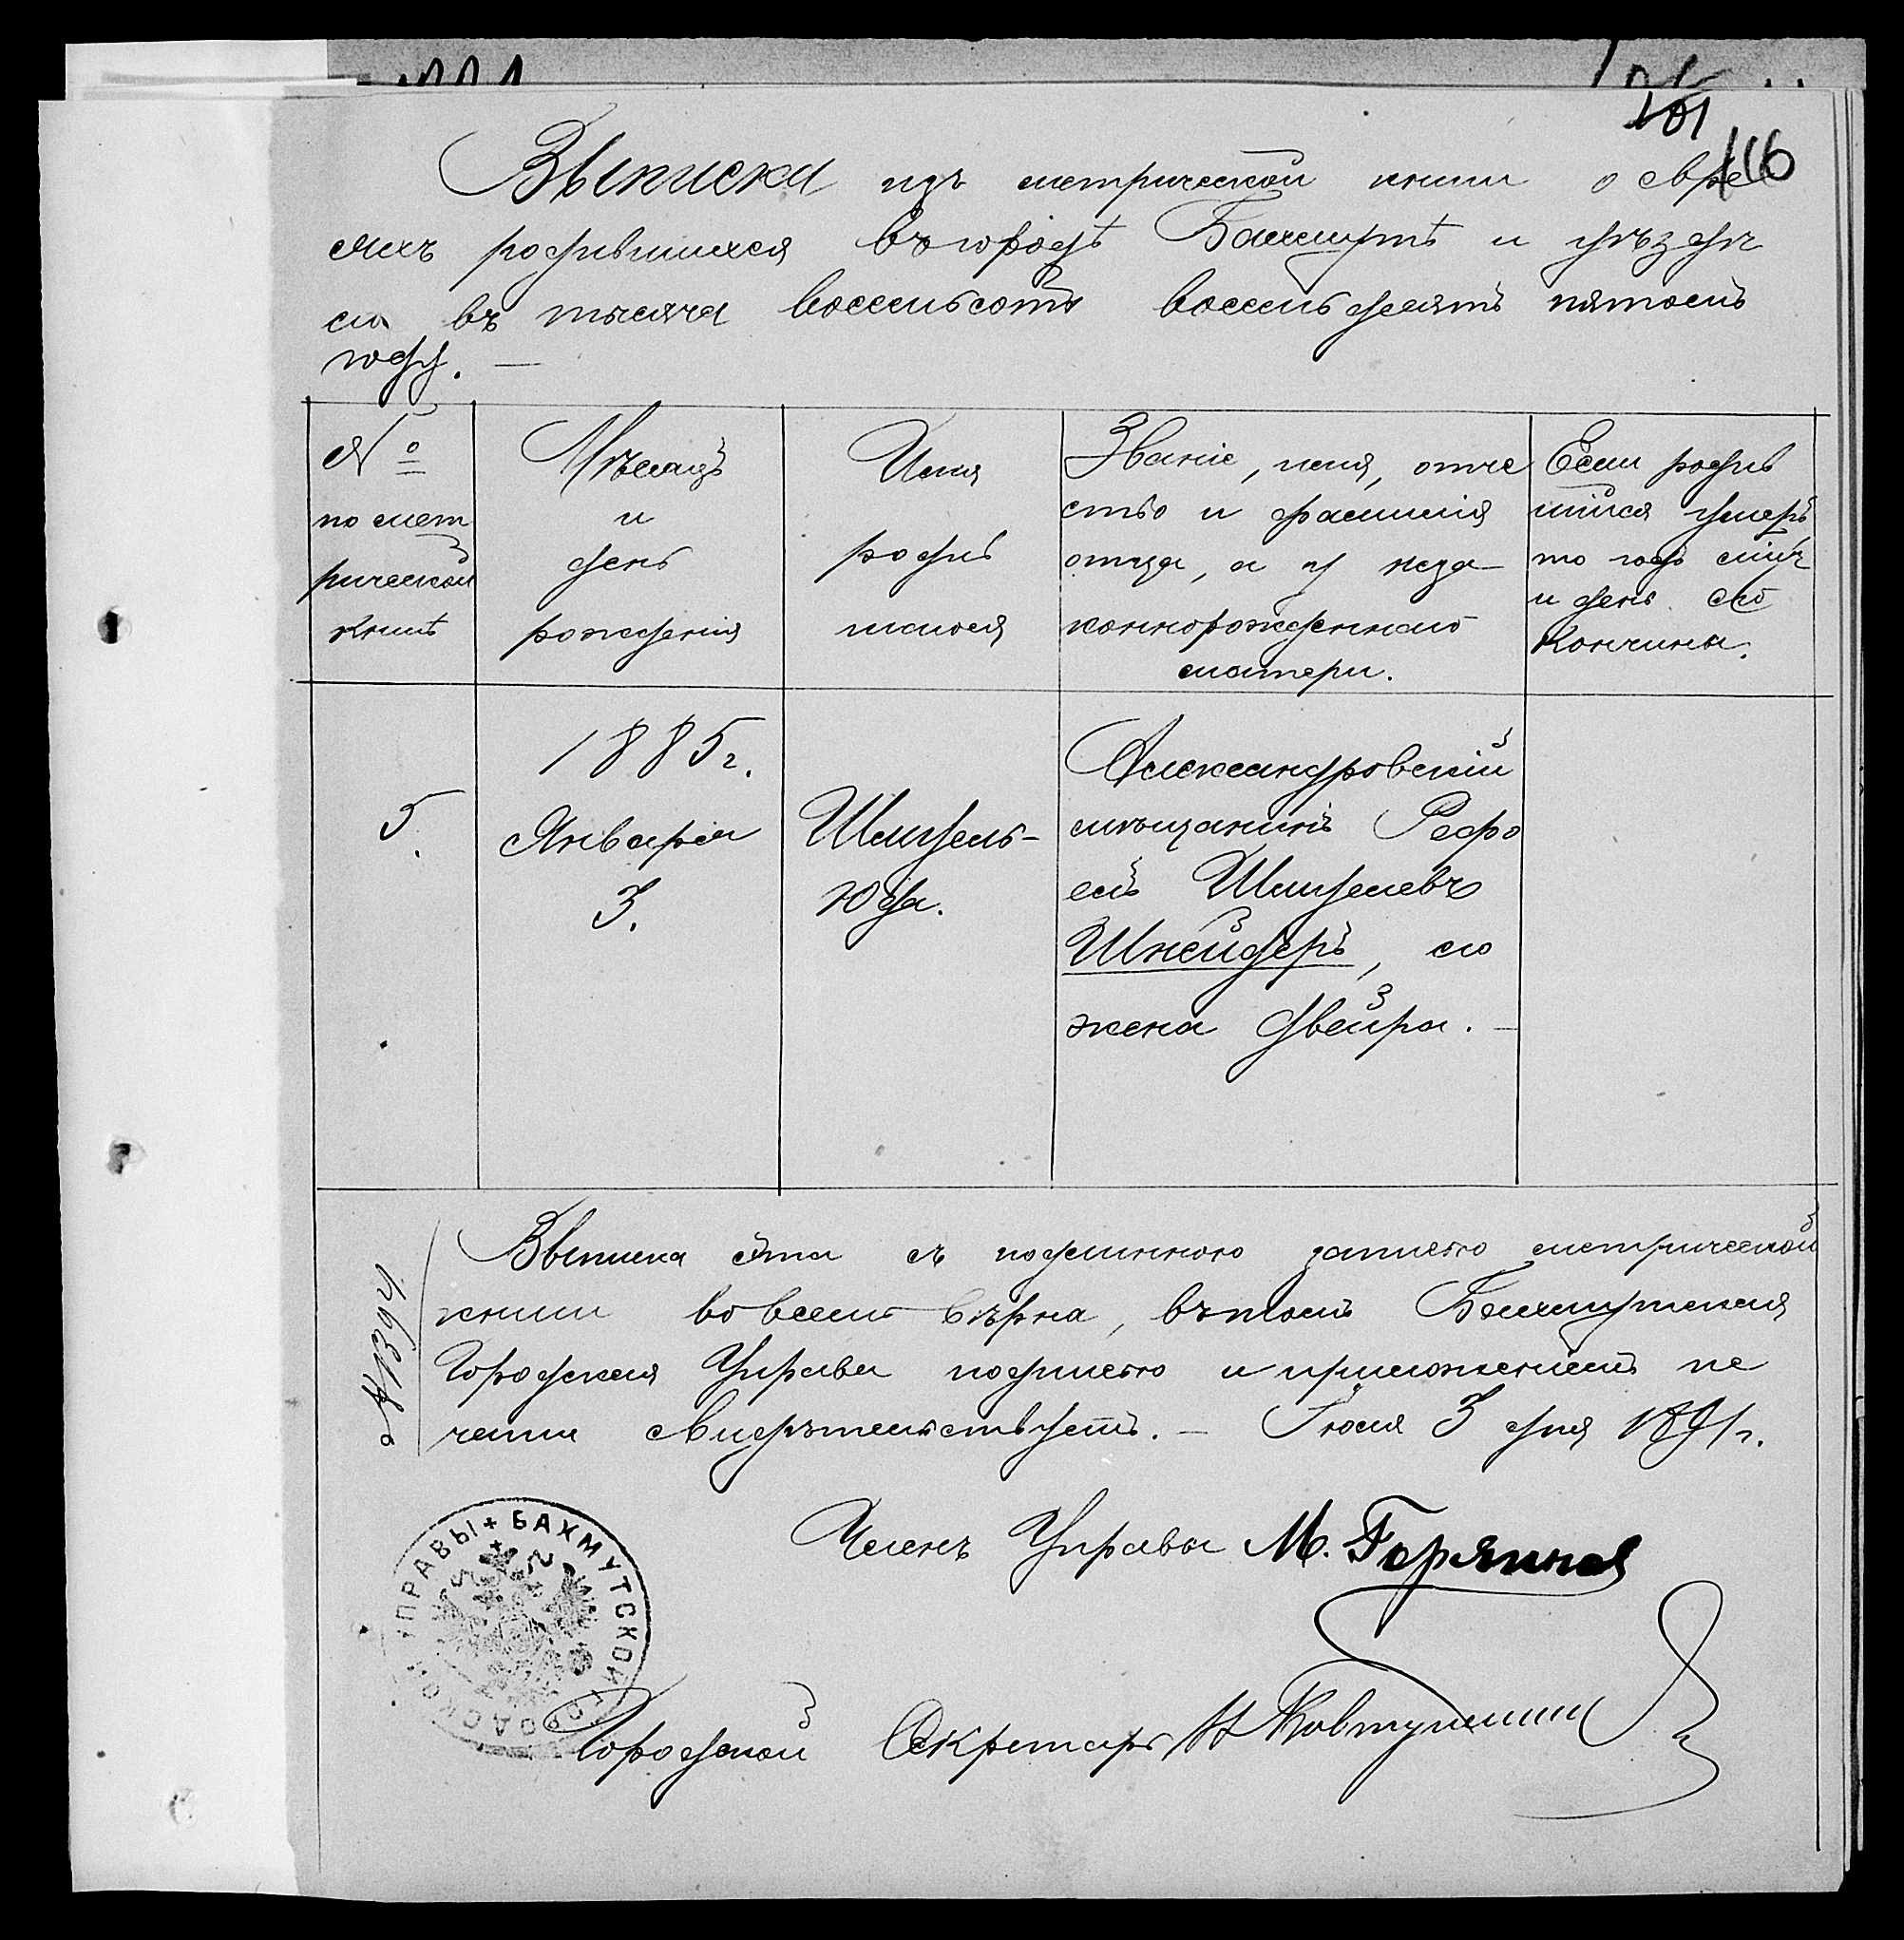 101
116
Выписка изъ метрической книги о евре
яхъ родившихся въ городѣ Бахмутѣ и уѣздѣ
его въ тысяча восемьсотъ восемьдесятъ пятомъ
году. —
№
по мет
рической
книгѣ
Мѣсяцъ
и
день
рожденія
Имя
родив
шагося
Званіе, имя, отче
ство и фамилія
отца, а у неза-
коннорожденнаго
матери.
Если родив
шійся умеръ
то годъ м-цъ
и день его
кончины.
5.
1885 г.
Января
3.
Шмуель-
Юда.
Александровскій
мѣщанинъ Рефо
елъ Шмуелевъ
Шнейдеръ, его
жена Двейра. —
Выписка эта съ подлинною записью метрической
книги во всемъ вѣрна, въ томъ Бахмутская
Городская Управа подписью и приложеніемъ пе
чати свидѣтельствуетъ. — Іюля 3 дня 1891 г.
№ 1394
Членъ Управы М. Горяинов
БАХМУТСКОЙ ГОРОДСКОЙ УПРАВЫ
Городской Секретарь